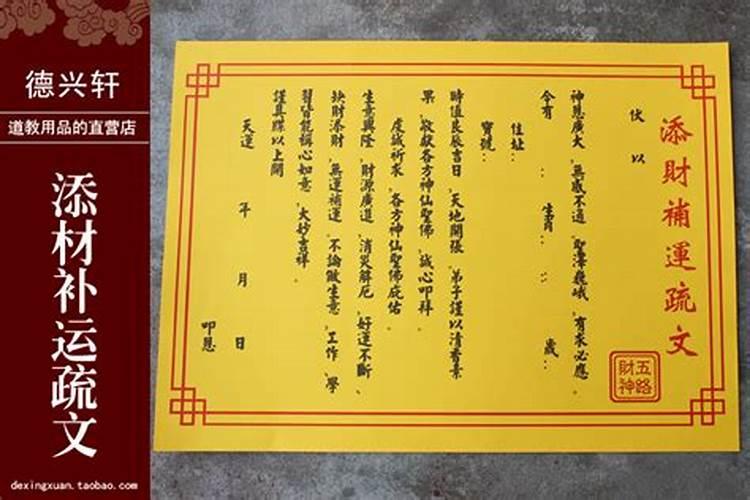 德兴轩
道教用品的直营店
添材补运疏文
dexingxuan.taobao.com
添財補運疏文
五路
財神
伏以
神恩廣大,無感不通,聖澤巍峨,有求必應。
今有 : 生肖: : 歲:
住址:
寶號:
時值良辰吉日,天地開張,弟子謹以清香素
果,敬獻各方神仙聖佛,誠心叩拜。
虔誠祈求,各方神仙聖佛庇佑
生意興隆,財源廣進,消災解厄,好運不斷、
缺財添財,無運補運,不論做生意,工作,學
習皆能稱心如意,大妙吉祥。
謹具牒以上聞
天運 年 月 日
叩恩